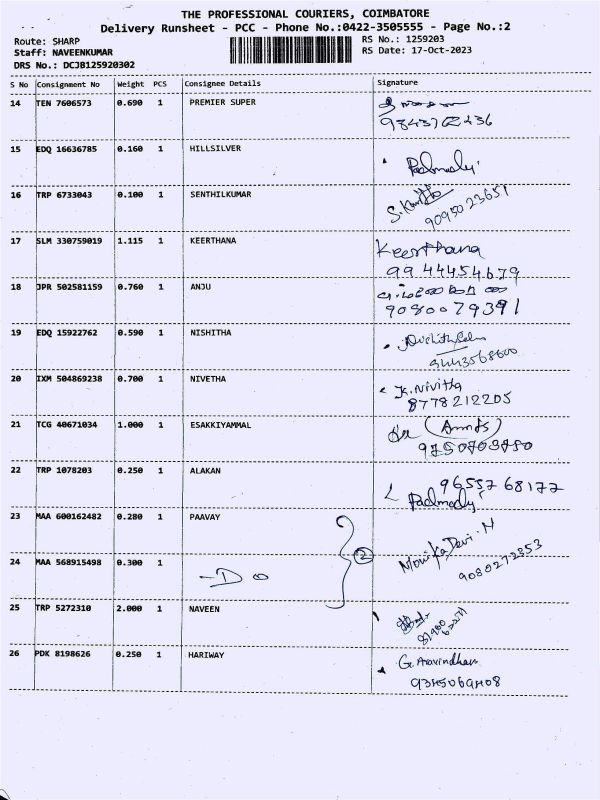 THE PROFESSIONAL COURIERS, COIMBATORE
Delivery Runsheet - PCC - Phone No.:0422-3505555 - Page No.:2
Route: SHARP
RS No.: 1259203
Staff: NAVEENKUMAR
RS Date: 17-Oct-2023
DRS No.: DCJB125920302
S No Consignment No Weight PCS Consignee Details Signature
14 TEN 7606573 0.690 1 PREMIER SUPER
9843762436
15 EDQ 16636785 0.160 1 HILLSILVER
16 TRP 6733043 0.100 1 SENTHILKUMAR
9095023651
17 SLM 330759019 1.115 1 KEERTHANA Keerthana
9944454679
18 JPR 502581159 0.760 1 ANJU
9080079391
19 EDQ 15922762 0.590 1 NISHITHA
9443568600
20 IXM 504869238 0.700 1 NIVETHA K.Nivitha
8778212205
21 TCG 40671034 1.000 1 ESAKKIYAMMAL
22 TRP 1078203 0.250 1 ALAKAN 9655768177
23 MAA 600162482 0.280 1 PAAVAY 2 Monika Devi. N
9080272353
24 MAA 568915498 0.300 1 -Do
25 TRP 5272310 2.000 1 NAVEEN
26 PDK 8198626 0.250 1 HARIWAY G. Aravindhan
9345069408